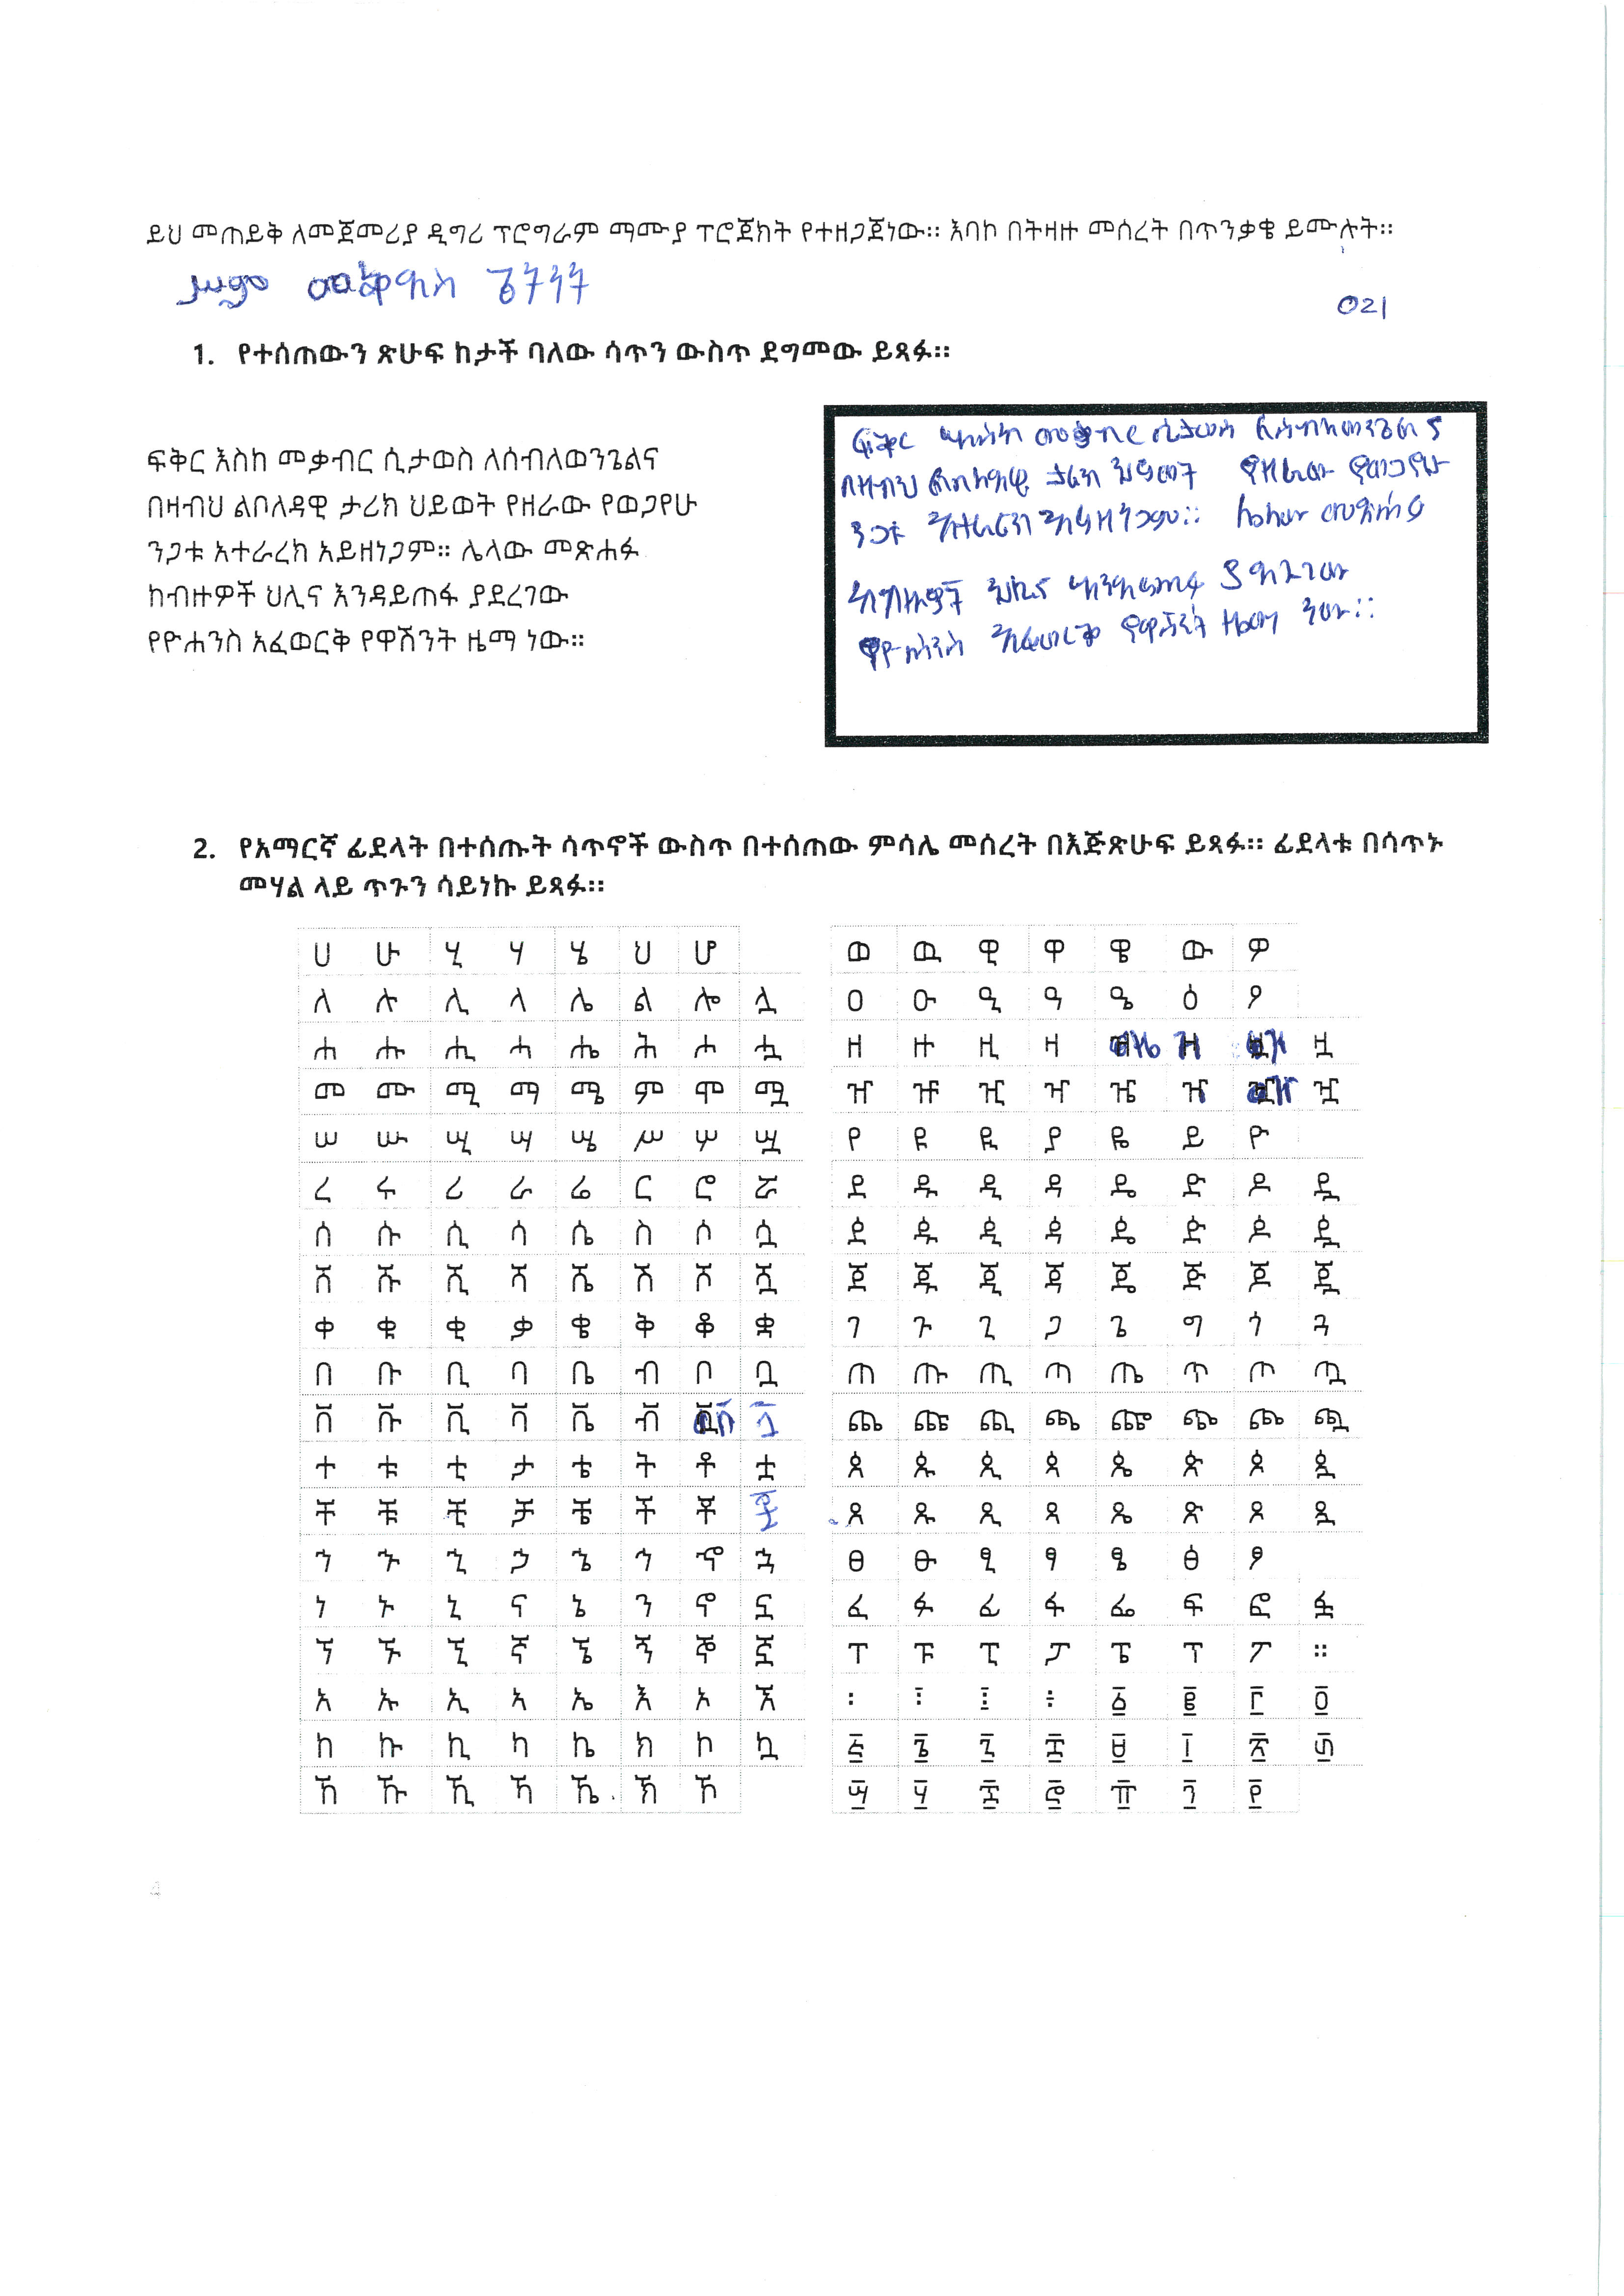 ይህ መጠይቅ ለመጀመሪያ ዲግሪ ፕሮግራም ማሙያ ፕሮጀክት የተዘጋጀነው። እባኮ በትዛዙ መሰረት በጥንቃቄ ይሙሉት።
021
1. የተሰጠውን ጽሁፍ ከታች ባለው ሳጥን ውስጥ ደግመው ይጻፉ።
ፍቅር እስከ መቃብር ሲታወስ ለሰብለወንጌልና
በዛብህ ልቦለዳዊ ታሪክ ህይወት የዘራው የወጋየሁ
ንጋቱ አተራረክ አይዘነጋም። ሌላው መጽሐፉ
ከብዙዎች ህሊና እንዳይጠፋ ያደረገው
የዮሐንስ አፈወርቅ የዋሽንት ዜማ ነው።
ፍቅር እስከ መቃብር ሲታወስ ለሰብለወንጌልና
በዛብህ ልቦለዳዊ ታሪክ ህይወት የዘራው የወጋየሁ
ንጋቱ አተራረክ አይዘነጋም። ሌላው መጽሐፉ
ከብዙዎች ህሊና እንዳይጠፋ ያደረገው
የዮሐንስ አፈወርቅ የዋሽንት ዜማ ነው።
2. የአማርኛ ፊደላት በተሰጡት ሳጥኖች ውስጥ በተሰጠው ምሳሌ መሰረት በእጅጽሁፍ ይጻፉ። ፊደላቱ በሳጥኑ
መሃል ላይ ጥጉን ሳይነኩ ይጻፉ።
ሀ ሁ ሂ ሃ ሄ ህ ሆ
ለ ሉ ሊ ላ ሌ ል ሎ ሏ
ሐ ሑ ሒ ሓ ሔ ሕ ሖ ሗ
መ ሙ ሚ ማ ሜ ም ሞ ሟ
ሠ ሡ ሢ ሣ ሤ ሥ ሦ ሧ
ረ ሩ ሪ ራ ሬ ር ሮ ሯ
ሰ ሱ ሲ ሳ ሴ ስ ሶ ሷ
ሸ ሹ ሺ ሻ ሼ ሽ ሾ ሿ
ቀ ቁ ቂ ቃ ቄ ቅ ቆ ቋ
በ ቡ ቢ ባ ቤ ብ ቦ ቧ
ቨ ቩ ቪ ቫ ቬ ቭ ቮ ቯ
ተ ቱ ቲ ታ ቴ ት ቶ ቷ
ቸ ቹ ቺ ቻ ቼ ች ቾ ቿ
ኀ ኁ ኂ ኃ ኄ ኅ ኆ ኋ
ነ ኑ ኒ ና ኔ ን ኖ ኗ
ኘ ኙ ኚ ኛ ኜ ኝ ኞ ኟ
አ ኡ ኢ ኣ ኤ እ ኦ ኧ
ከ ኩ ኪ ካ ኬ ክ ኮ ኳ
ኸ ኹ ኺ ኻ ኼ ኽ ኾ
ወ ዉ ዊ ዋ ዌ ው ዎ
ዐ ዑ ዒ ዓ ዔ ዕ ዖ
ዘ ዙ ዚ ዛ ዜ ዝ ዞ ዟ
ዠ ዡ ዢ ዣ ዤ ዥ ዦ ዧ
የ ዩ ዪ ያ ዬ ይ ዮ
ደ ዱ ዲ ዳ ዴ ድ ዶ ዷ
ዸ ዹ ዺ ዻ ዼ ዽ ዾ ዿ
ጀ ጁ ጂ ጃ ጄ ጅ ጆ ጇ
ገ ጉ ጊ ጋ ጌ ግ ጎ ጓ
ጠ ጡ ጢ ጣ ጤ ጥ ጦ ጧ
ጨ ጩ ጪ ጫ ጬ ጭ ጮ ጯ
ጰ ጱ ጲ ጳ ጴ ጵ ጶ ጷ
ጸ ጹ ጺ ጻ ጼ ጽ ጾ ጿ
ፀ ፁ ፂ ፃ ፄ ፅ ፆ
ፈ ፉ ፊ ፋ ፌ ፍ ፎ ፏ
ፐ ፑ ፒ ፓ ፔ ፕ ፖ ።
፡ ፣ ፤ ፥ ፩ ፪ ፫ ፬
፭ ፮ ፯ ፰ ፱ ፲ ፳ ፴
፵ ፶ ፷ ፸ ፹ ፺ ፻